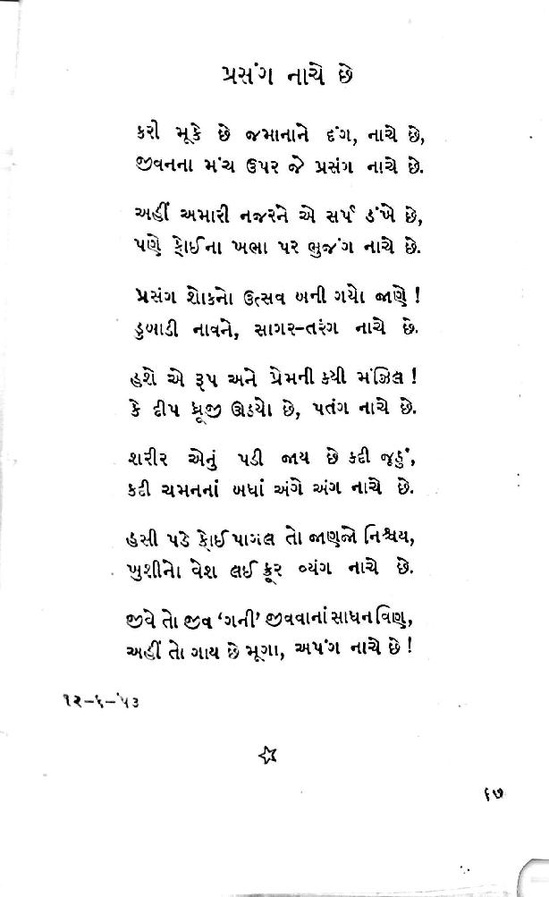 પ્રસંગ નાચે છે
કરી મૂકે છે જમાનાને દંગ, નાચે છે,
જીવનના મંચ ઉપર જે પ્રસંગ નાચે છે.
અહીં અમારી નજરને એ સર્પ ડંખે છે,
પણે કોઈના ખભા પર ભુજંગ નાચે છે.
પ્રસંગ શોકનો ઉત્સવ બની ગયો જાણે !
ડુબાડી નાવને, સાગર–તરંગ નાચે છે.
હશે એ રૂપ અને પ્રેમની કયી મંઝિલ !
કે દીપ ધ્રૂજી ઊઠયો છે, પતંગ નાચે છે.
શરીર એનું પડી જાય છે કદી જૂઠું,
કદી ચમનનાં બધાં અંગે અંગ નાચે છે.
હસી પડે કોઈ પાગલ તો જાણજો નિશ્ચય,
ખુશીનો વેશ લઈ ક્રૂર વ્યંગ નાચે છે.
જીવે તો જીવ ‘ગની’ જીવવાનાં સાધન વિણ,
અહીં તો ગાય છે મૂગા, અપંગ નાચે છે !
૧૨–૬–’૫૩
૬૭